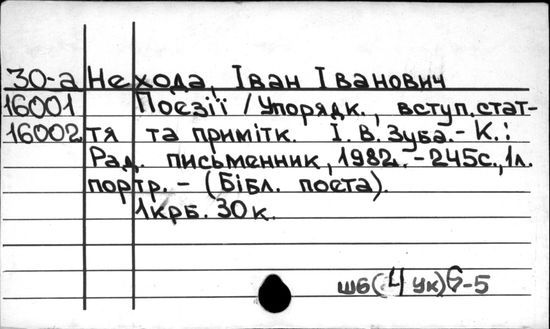 30-а Нехода, Іван Іванович
16001 Поезії / Упорядк., вступ. стат-
16002 тя та примітк. І. В. Зуба. - К.:
Рад. письменник, 1982. - 245с., 1л.
портр. - (Бібл. поета).
1крб. 30к.
ш6(4 Ук)6-5